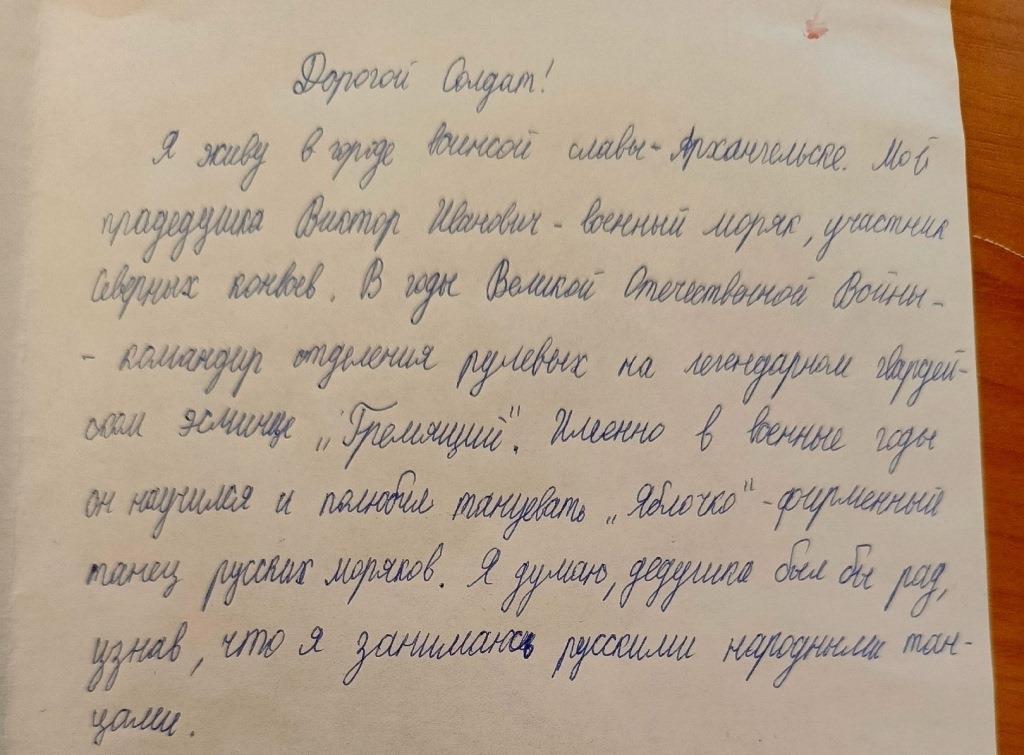 Дорогой Солдат!
Я живу в городе воинсой славы - Архангельске. Мой
прадедушка Виктор Иванович - военный моряк, участник
Северных конвоев. В годы Великой Отечественной Войны -
- командир отделения рулевых на легендарном гвардей-
ском эсминце "Гремящий". Именно в военные годы
он научился и полюбил танцевать "Яблочко" - фирменный
танец русских моряков. Я думаю, дедушка был бы рад,
узнав, что я занимаюсь русскими народными тан-
цами.